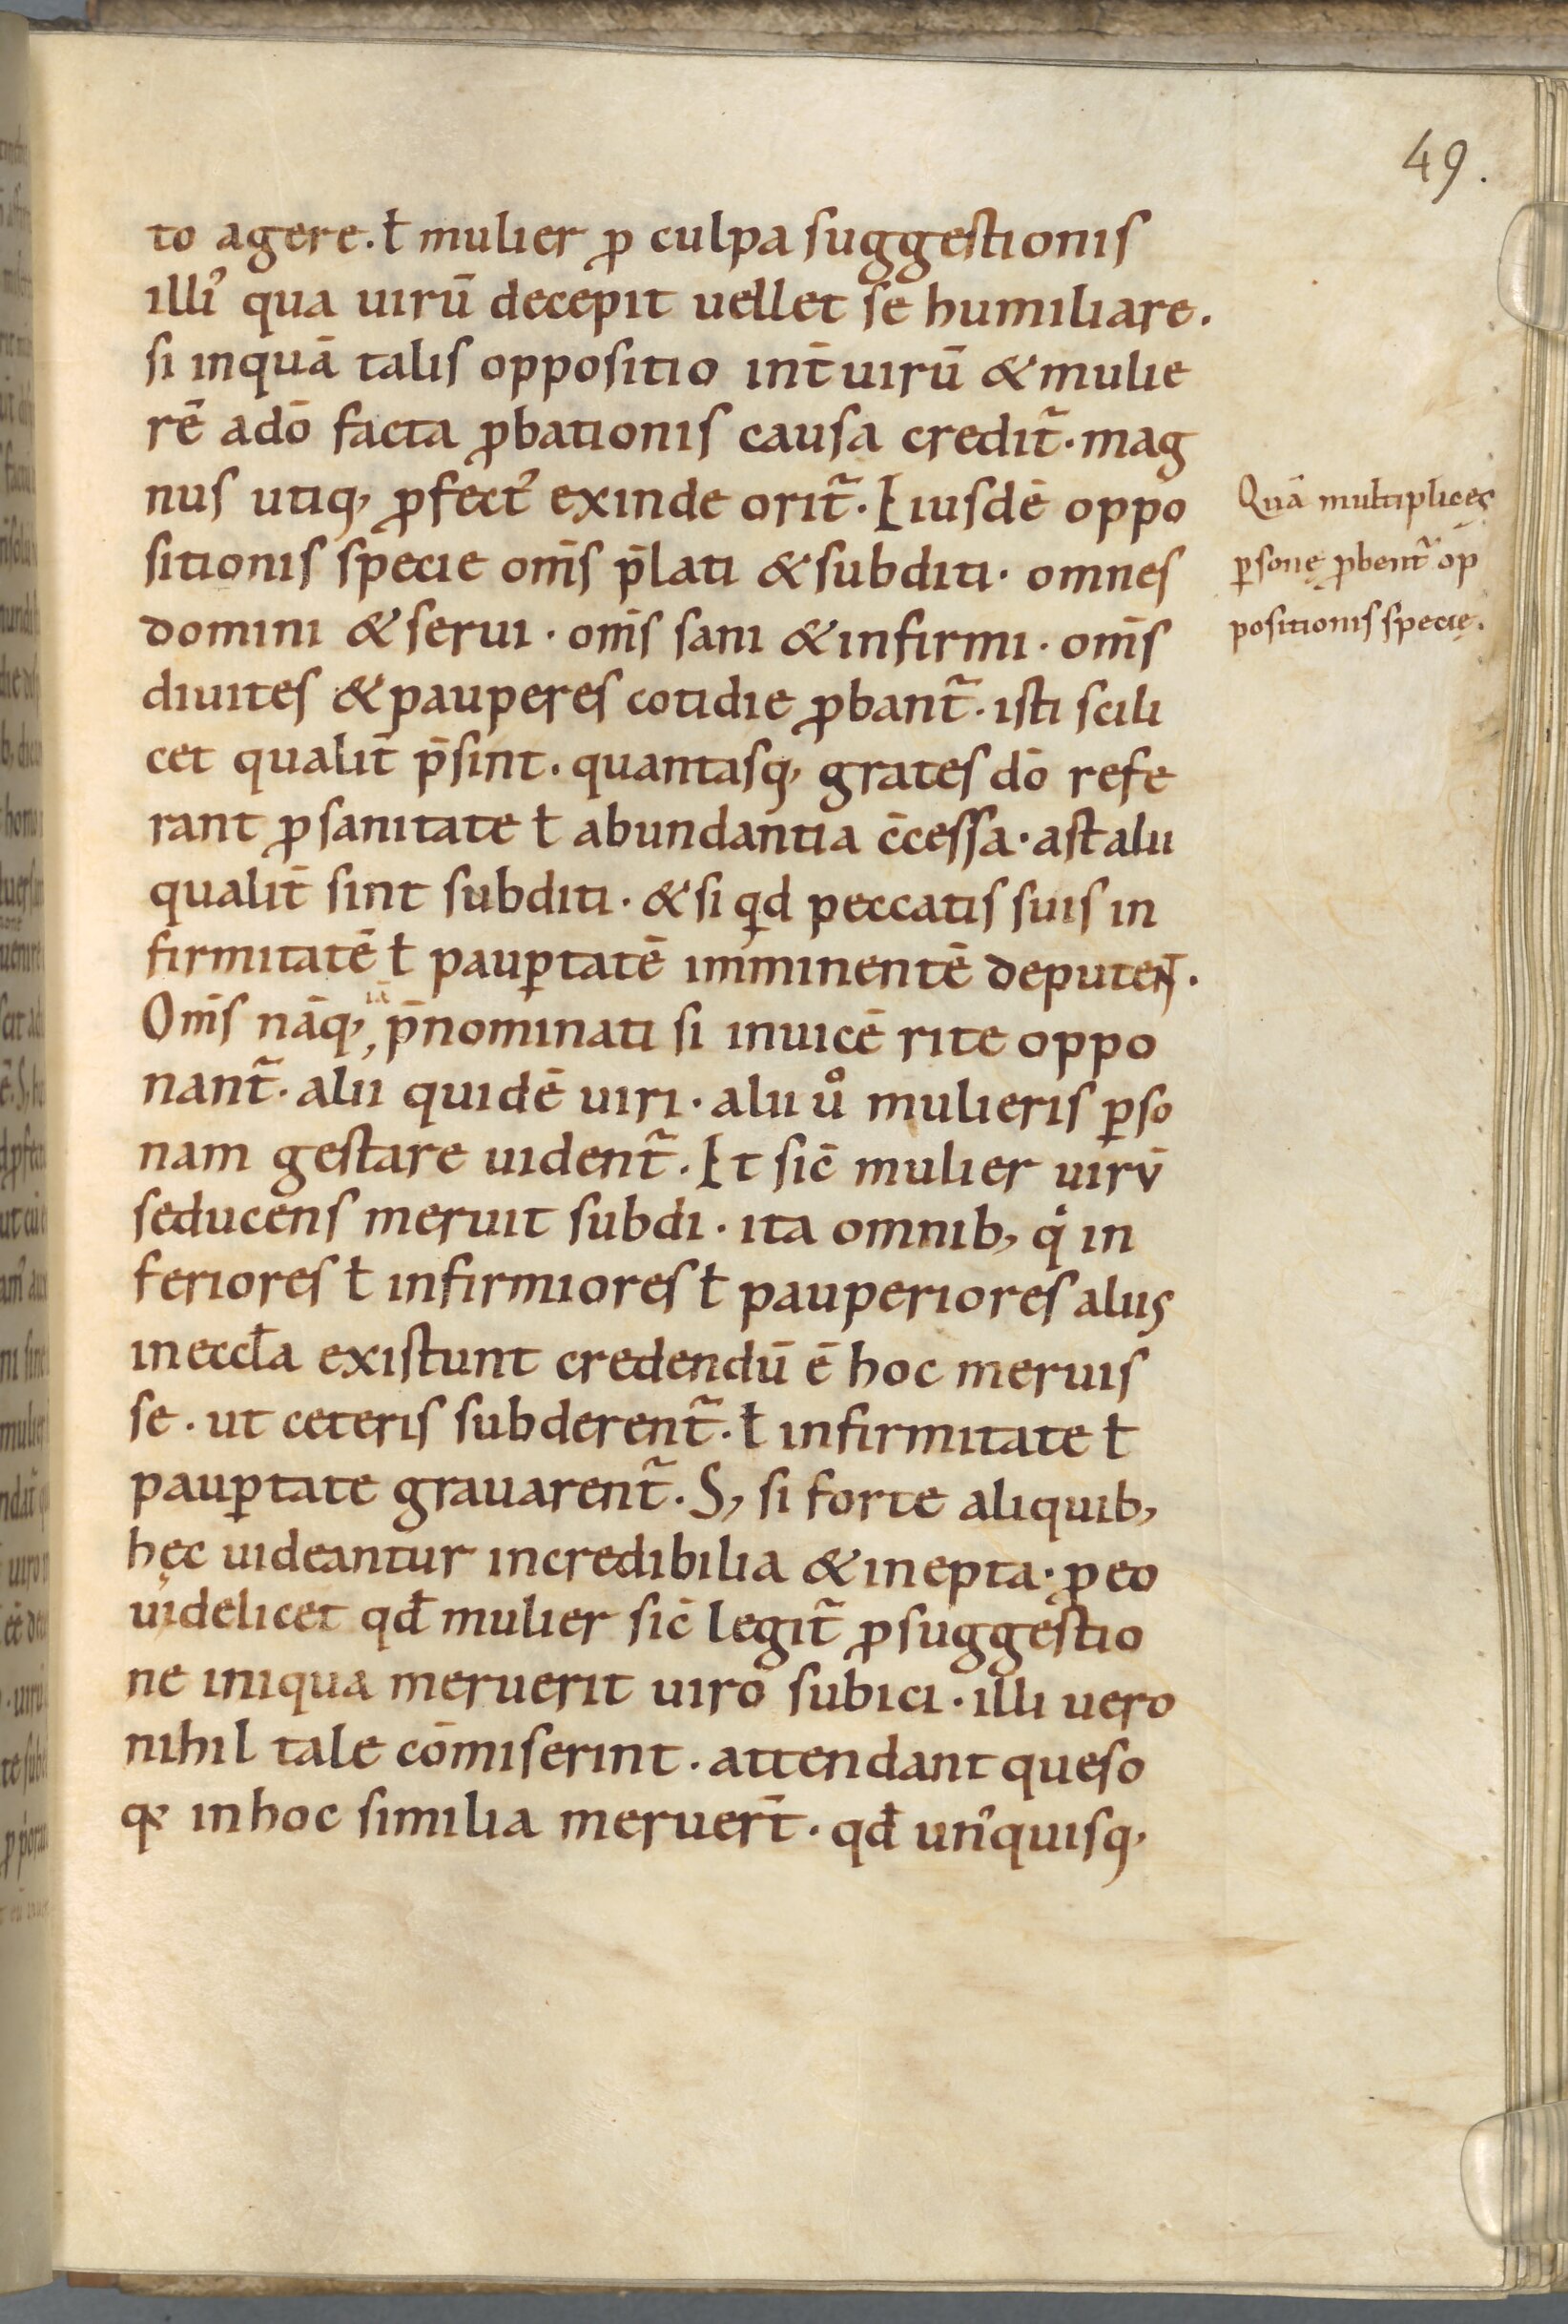 49.
to agere. ł mulier ꝓ culpa suggestionis
illi᾽ qua uirū decepit uellet se humiliare.
si inquā talis oppositio int̄ uirū & mulie
rē adō facta ꝓbationis causa credit᷑. mag
nus utiq; ꝓfect᾽ exinde orit᷑. Eiusdē oppo
sitionis specie om̄s p̄lati & subditi. omnes
domini & serui. om̄s sani & infirmi. om̄s
diuites & pauperes cotidie ꝓbant᷑. isti scili
cet qualit̄ p̄sint. quantasq; grates dō refe
rant ꝓ sanitate ł abundantia c̄cessa. ast alii
qualit̄ sint subditi. & si qͥd peccatis suis in
firmitatē ł pauꝑtatē imminentē deputent̄.
Om̄s nāq; iā p̄nominati si inuicē rite oppo
nant᷑. alii quidē uiri. alii uͦ mulieris ꝑso
nam gestare uident᷑. Et sic̄ mulier uirū
seducens meruit subdi. ita omnib; qͥ in
feriores ł infirmiores ł pauperiores aliis
in eccła existunt credendū ē hoc meruis
se. ut ceteris subderent᷑. ł infirmitate ł
pauꝑtate grauarent᷑. S; si forte aliquib;
hęc uideantur incredibilia & inepta. ꝓ eo
uidelicet qđ mulier sic̄ legit᷑ ꝓ suggestio
ne iniqua meruerit uiro subici. illi uero
nihil tale cōmiserint. attendant queso
qꝫ in hoc similia meruert̄. qđ un᾽quisq;
Quā multiplices
ꝑsonę ꝓbent᷑ op
positionis specie.